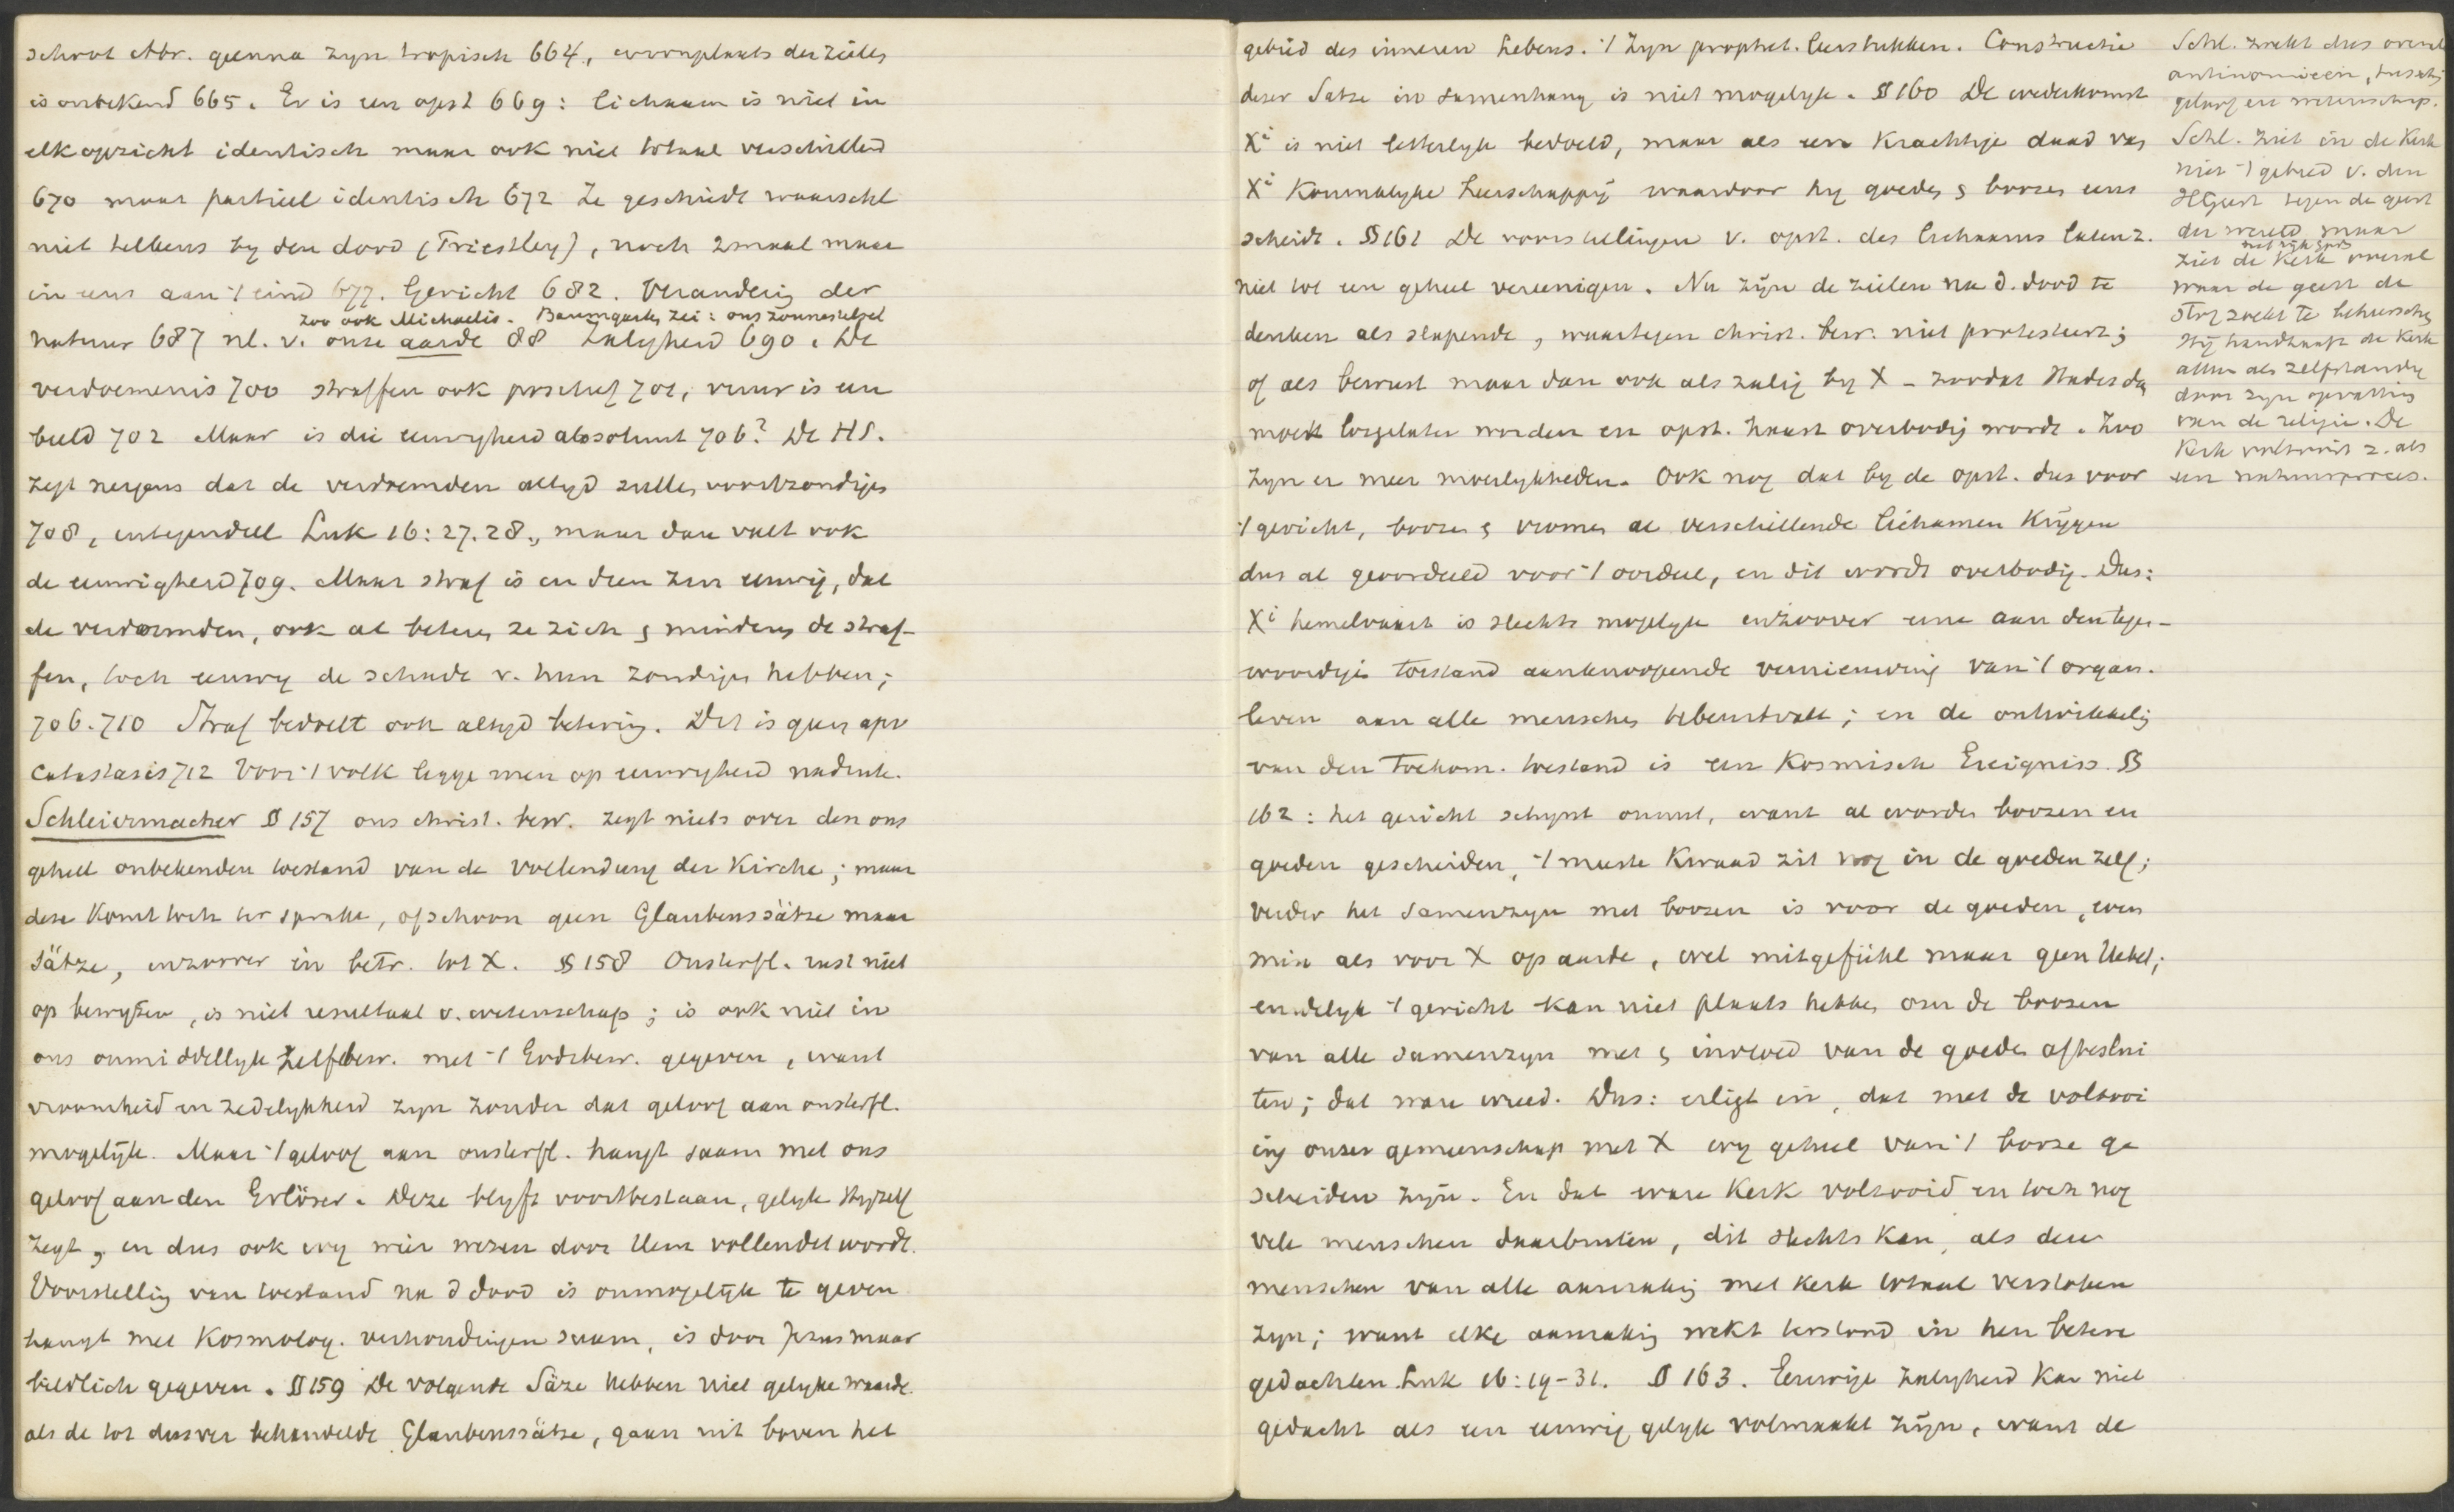 schoot Abr. geenna zyn tropisch 664, woonplaats der zielen
is onbekend 665. Er is een opst 669: lichaam is niet in
elk opzicht identisch maar ook niet totaal verschillend
670 maar partieel identisch 672 Ze geschiedt waarschl
niet telkens by den dood (Priestley), noch 2maal maar
in eens aan 't eind 677. Gericht 682. Verandering der
zoo ook Michaelis. Baumgarten zei: ons zonnestelsel
natuur 687 nl. v. onze aarde 88 Zaligheid 690. De
verdoemenis 700 straffen ook 701, vuur is een
beeld 702 Maar is die eeuwigheid absoluut 706? De HS.
zegt nergens dat de verdoemden altyd zullen voortzondigen
708, integendeel Luk 16:27.28., maar dan valt ook
de eeuwigheid 709. Maar straf is in dien zin eeuwig, dat
de verdoemden, ook al beteren ze zich & minderen de straf-
fen, toch eeuwig de schade v. hun zondigen hebben;
706.710 Straf bedoelt ook altyd betering. Dit is geen apo
catastasis 712 Voor 't volk legge men op eeuwigheid nadruk.
Schleiermacher § 157 ons christ. bew. zegt niets over den ons
geheel onbekenden toestand van de Vollendung der Kirche; maar
deze komt toch ter sprake, ofschoon geen Glaubenssätze maar
Sätze, inzoover in betr. tot X. § 158 Onsterfl. rust niet
op bewyzen, is niet resultaat v. wetenschap; is ook niet in
ons onmiddellyk zelfbew. met 't Godsbew. gegeven, want
vroomheid en zedelykheid zyn zonder dat geloof aan onsterfl.
mogelyk. Maar 't geloof aan onsterfl. hangt saam met ons
geloof aan den Erlöser. Deze blyft voortbestaan, gelyk Hyzelf
zegt, en dus ook wy wier wezen door Hem vollendet wordt.
Voorstelling van toestand na d dood is onmogelyk te geven
hangt met Kosmolog. verhoudingen saam, is door Jezus maar
bildlich gegeven. § 159 De volgende Säze hebben niet gelyke waarde
als de tot dusver behandelde Glaubenssätze, gaan uit boven het
gebied des inneren Lebens. 't Zyn prophet. leerstukken. Constructie
dezer Sätze in samenhang is niet mogelyk. § 160 De wederkomst
Xi is niet letterlyk bedoeld, maar als een Krachtige daad van
Xi Koninklyke heerschappij waardoor hy goeden & boozen eens
scheidt. § 161 De voorstellingen v. opst. des lichaams laten z.
niet tot een geheel vereenigen. Nu zijn de zielen na d. dood te
denken als slapende, waartegen christ. bew. niet protesteert;
of als bewust maar dan ook als zalig by X – zoodat Hades dan
moet losgelaten worden en opst. haast overbodig wordt. Zoo
zyn er meer moeilykheden. Ook nog dat by de opst. dus voor
't gericht, boozen & vromen al verschillende lichamen krijgen
dus al geoordeeld voor 't oordeel, en dit wordt overbodig. Dus:
Xi hemelvaart is slechts mogelyk inzoover eene aan den tegen-
woordigen toestand aanknoopende vernieuwing van 't organ.
leven aan alle menschen bevorstaat; en de ontwikkeling
van den toekom. toestand is een Kosmisch Ereigniss. §
162: het gericht schynt onnut, want al worden boozen en
goeden gescheiden, 't meeste kwaad zit nog in de goeden zelf;
verder het samenzyn met boozen is voor de goeden, even
min als voor X op aarde, wel mitgefühl maar geen Uebel;
eindelyk 't gericht kan niet plaats hebben om de boozen
van alle samenzyn met & invloed van de goeden afteslui
ten; dat ware wreed. Dus: er ligt in, dat met de voltooi
ing onzer gemeenschap met X wy geheel van 't booze ge
scheiden zijn. En dat ware Kerk voltooid en toch nog
vele menschen daarbuiten, dit slechts kan, als deze
menschen van alle aanraking met Kerk totaal verstoken
zyn; want elke aanraking wekt weerstand in hen betere
gedachten. Luk 16:19-31. § 163. Eeuwige Zaligheid kan niet
gedacht als een eeuwig gelyk volmaakt zijn, want de
Schl. zoekt dus overal
antinomieën, tusschen
geloof en wetenschap.
Schl. ziet in de Kerk
niet 't gebied v. den
HGeest tegen de geest
der wereld, maar
met ryk Gods
ziet de Kerk overal
waar de geest de
stof zoekt te beheerschen
Hij handhaaft de Kerk
alleen als zelfstandig
door zyn opvatting
van de religie. De
Kerk voltooit z. als
een natuurproces.